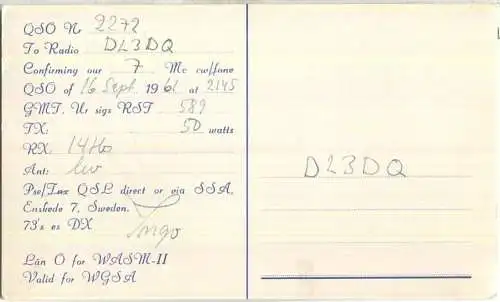 QSO Nr 2272
To Radio DL3DQ
Confirming our 7 Mc cw/fone
QSO of 16 Sept. 1961 at 2145
GMT. Ur sigs RST 589
TX: 50 watts
RX:
Ant: lw
Pse/Tnx QSL direct or via SSA,
Enskede 7, Sweden.
73's es DX Ingo
Län O for WASM-II
Valid for WGSA
DL3DQ